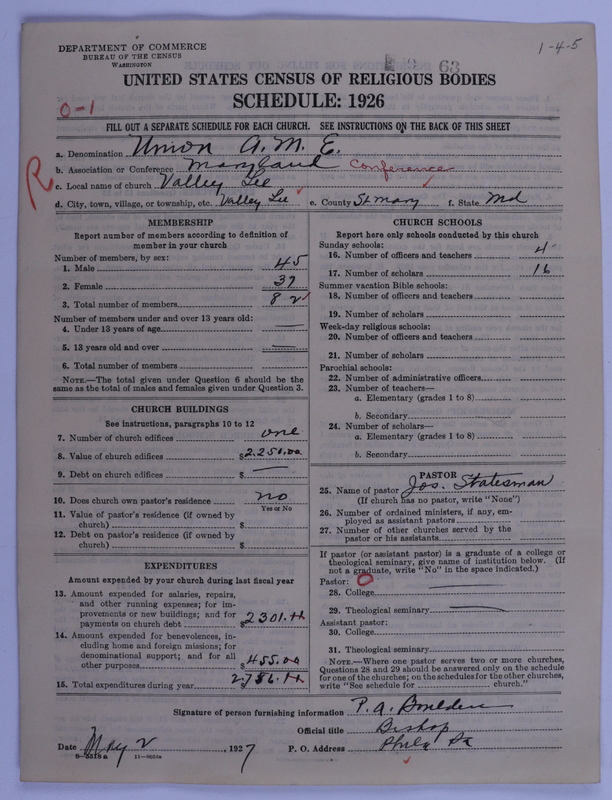 1-4-5
DEPARTMENT OF COMMERCE
BUREAU OF THE CENSUS
WASHINGTON
63
UNITED STATES CENSUS OF RELIGIOUS BODIES
SCHEDULE: 1926
0-1
FILL OUT A SEPARATE SCHEDULE FOR EACH CHURCH. SEE INSTRUCTIONS ON THE BACK OF THIS SHEET
R
a. Denomination Union A. M. E.
b. Association or Conference Maryland Conference
c. Local name of church Valley Lee
d. City, town, village, or township, etc. Valley Lee e. County St Mary f. State Md
MEMBERSHIP
Report number of members according to definition of
member in your church
Number of members, by sex:
1. Male 45
2. Female 37
3. Total number of members 82
Number of members under and over 13 years old:
4. Under 13 years of age —
5. 13 years old and over —
6. Total number of members
NOTE.—The total given under Question 6 should be the
same as the total of males and females given under Question 3.
CHURCH BUILDINGS
See instructions, paragraphs 10 to 12
7. Number of church edifices one
8. Value of church edifices $2.250.00
9. Debt on church edifices $ —
10. Does church own pastor's residence no
Yes or No
11. Value of pastor's residence (if owned by
church) $
12. Debt on pastor's residence (if owned by
church) $
EXPENDITURES
Amount expended by your church during last fiscal year
13. Amount expended for salaries, repairs,
and other running expenses; for im-
provements or new buildings; and for
payments on church debt $2301.
14. Amount expended for benevolences, in-
cluding home and foreign missions; for
denominational support; and for all
other purposes $455.00
15. Total expenditures during year $2,756.
CHURCH SCHOOLS
Report here only schools conducted by this church
Sunday schools:
16. Number of officers and teachers 4
17. Number of scholars 16
Summer vacation Bible schools:
18. Number of officers and teachers
19. Number of scholars
Week-day religious schools:
20. Number of officers and teachers
21. Number of scholars
Parochial schools:
22. Number of administrative officers
23. Number of teachers—
a. Elementary (grades 1 to 8)
b. Secondary
24. Number of scholars—
a. Elementary (grades 1 to 8)
b. Secondary
PASTOR
25. Name of pastor Jos. Statesman
(If church has no pastor, write "None")
26. Number of ordained ministers, if any, em-
ployed as assistant pastors
27. Number of other churches served by the
pastor or his assistants
If pastor (or assistant pastor) is a graduate of a college or
theological seminary, give name of institution below. (If
not a graduate, write "No" in the space indicated.)
Pastor: 0
28. College —
29. Theological seminary —
Assistant pastor:
30. College
31. Theological seminary
NOTE.—Where one pastor serves two or more churches,
Questions 28 and 29 should be answered only on the schedule
for one of the churches; on the schedules for the other churches,
write "See schedule for church."
Signature of person furnishing information P. A. Boulden
Official title Bishop
Date May 2, 1927 P. O. Address Phila Pa
8-5518a 11-9654a